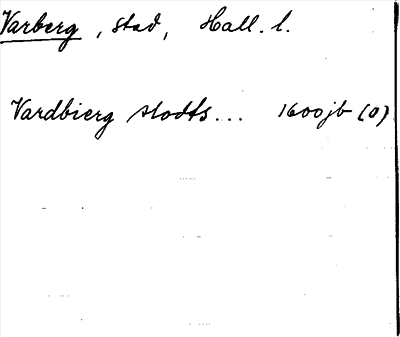 Varberg, stad, Hall. l.
Vardbierg slodts... 1600jb (0)